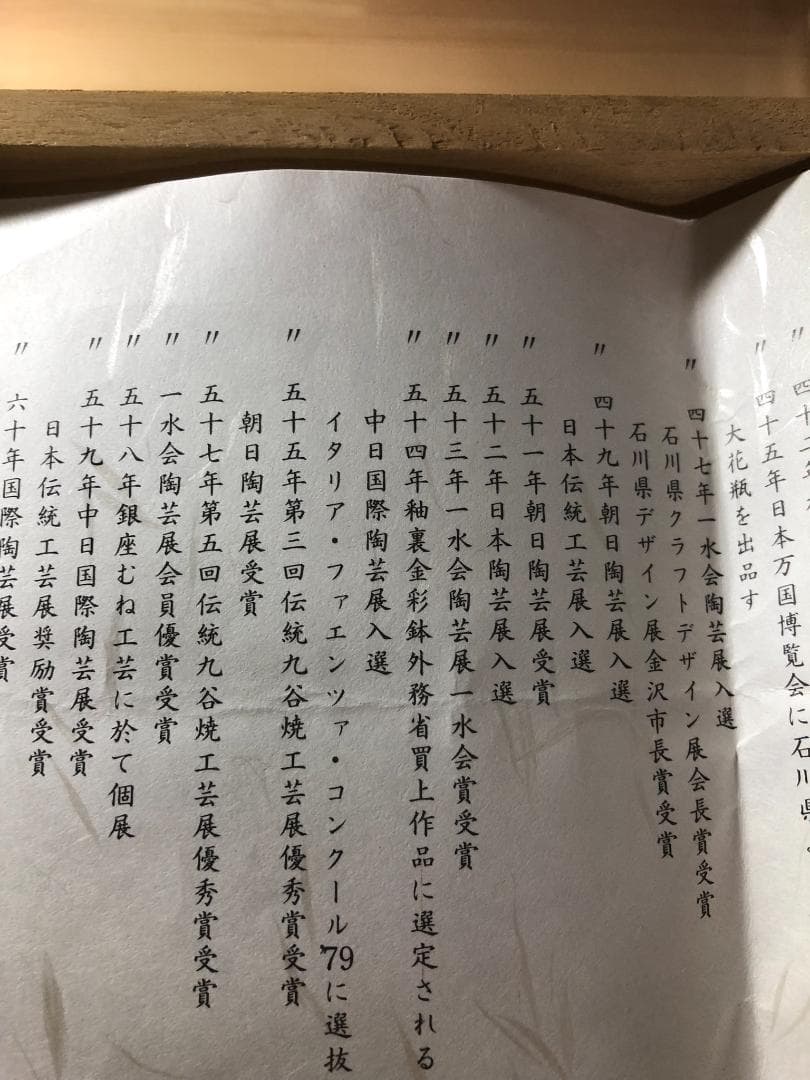 〃 四十五年日本万国博覧会に石川県
大花瓶を出品す
〃 四十七年一水会陶芸展入選
石川県クラフトデザイン展会長賞受賞
石川県デザイン展金沢市長賞受賞
〃 四十九年朝日陶芸展入選
日本伝統工芸展入選
〃 五十一年朝日陶芸展受賞
〃 五十二年日本陶芸展入選
〃 五十三年一水会陶芸展一水会賞受賞
〃 五十四年釉裏金彩鉢外務省買上作品に選定される
中日国際陶芸展入選
イタリア・ファエンツァ・コンクール'79に選抜
〃 五十五年第三回伝統九谷焼工芸展優秀賞受賞
朝日陶芸展受賞
〃 五十七年第五回伝統九谷焼工芸展優秀賞受賞
〃 一水会陶芸展会員優賞受賞
〃 五十八年銀座むね工芸に於て個展
〃 五十九年中日国際陶芸展受賞
日本伝統工芸展奨励賞受賞
〃 六十年国際陶芸展受賞